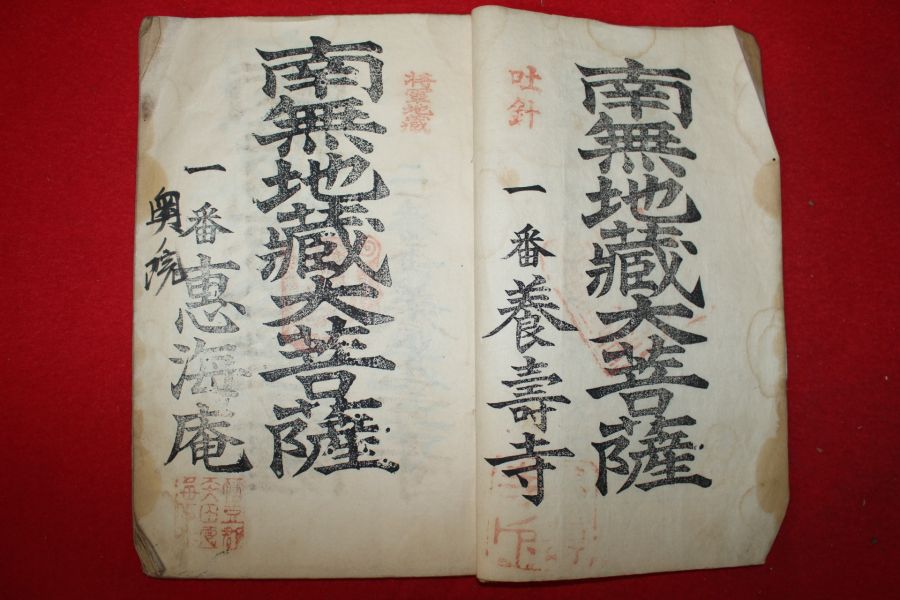 南無地藏大菩薩
吐針
一番養壽寺
將軍地藏
南無地藏大菩薩
一番惠海庵
奥院